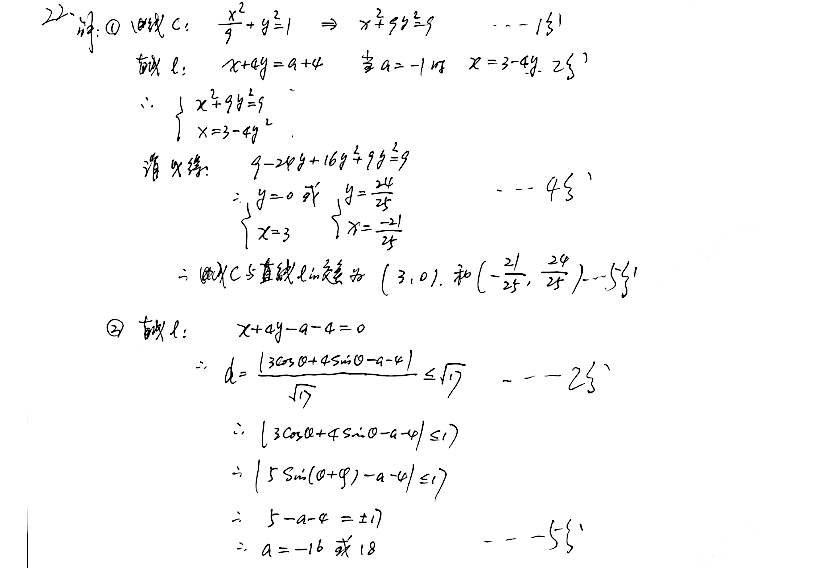 22. 解: ① 曲线C: x²/9 + y²=1 ⇒ x²+9y²=9 ---1分
直线 l: x+4y=a+4 当a=-1时 x=3-4y. 2分
∴ { x²+9y²=9
x=3-4y²
消x得: 9-24y+16y²+9y²=9
∴ { y=0 x=3 或 { y=24/25 x=-21/25 ---4分
∴ 曲线C与直线l的交点为 (3,0). 和(-21/25, 24/25)---5分
② 直线l: x+4y-a-4=0
∴ d= |3cosθ+4sinθ-a-4| / √17 ≤√17 ----2分
∴ |3cosθ+4sinθ-a-4|≤17
∴ |5sin(θ+φ)-a-4|≤17
∴ 5-a-4=±17
∴ a=-16 或 18 ----5分